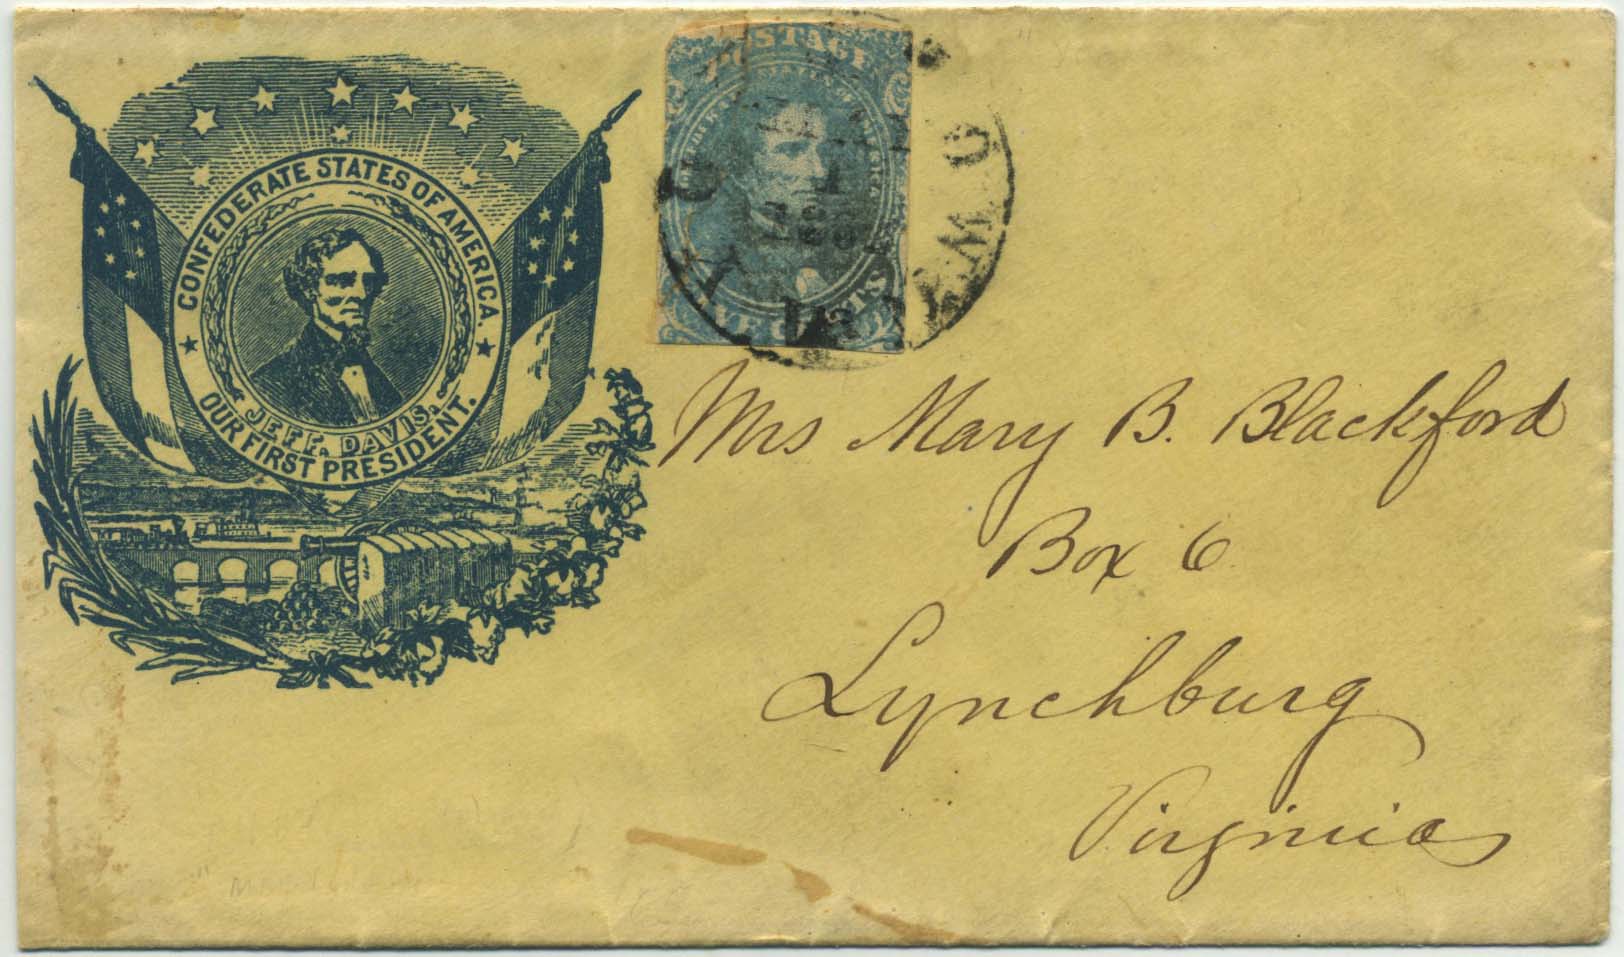 CONFEDERATE STATES OF AMERICA.
JEFF. DAVIS.
OUR FIRST PRESIDENT.
POSTAGE
CENTS
Mrs Mary B. Blackford
Box 6
Lynchburg
Virginia